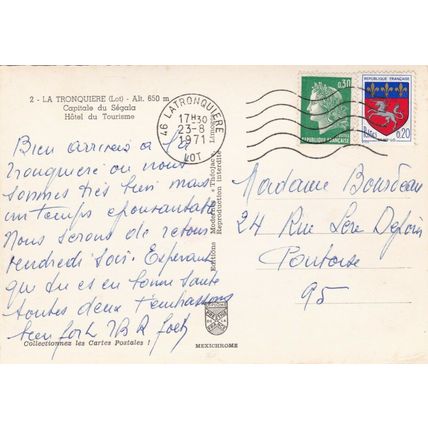 2 - LA TRONQUIERE (Lot) - Alt. 650 m
Capitale du Ségala
Hôtel du Tourisme
46 LATRONQUIERE
17H30
23-8
1971
LOT
0,30
REPUBLIQUE FRANÇAISE
REPUBLIQUE FRANÇAISE
0,20
Bien arrivées à la
Tronquière où nous
sommes très bien mais
un temps épouvantable
Nous serons de retour
vendredi soir. Espérant
que tu es en bonne santé
toutes deux t'embrassons
bien fort
Madame
24 Rue
Pontoise
95
Editions Modernes Théojac Limoges
Reproduction interdite
Collectionnez les Cartes Postales !
MEXICHROME